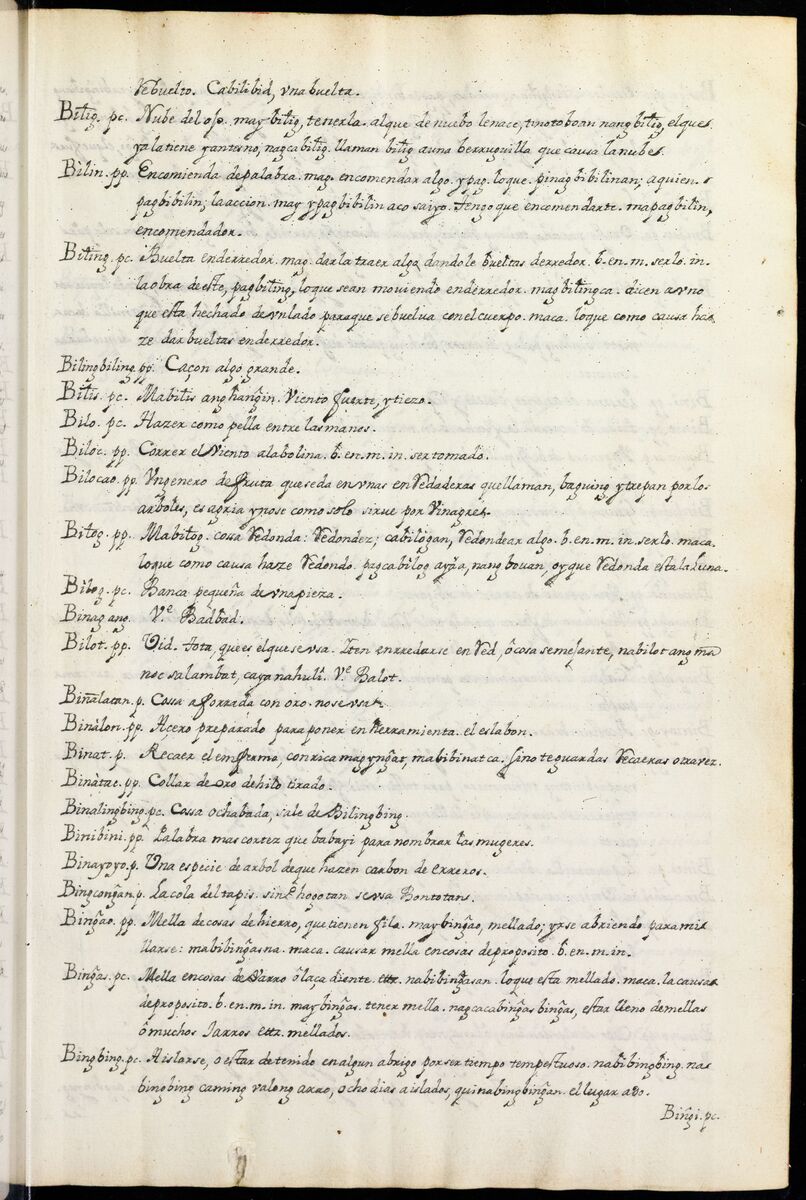 rebuelto. Cabilibid, vna buelta.
Bilig. pc. Nube del ojo. may bilig, tenerla. al que de nuebo le nace, tinotoboan nang bilig, el que
ya la tiene y antes no, nagcabilig. llaman bilig a una berruguilla que causa la nube.
Bilin. pp. Encomienda de palabra. mag. encomendar algo. ypag. lo que. pinagbibilinan; a quien.
pagbibilin; la accion. may ypagbibilin aco saiyo. tengo que encomendarte. mapagbilin,
encomendador.
Biling. pc. Buelta enderredor. mag. darla traer algo dandole bueltas derredor. b. en. m. serlo. in.
la obra de este, pagbiling, lo que sean mouiendo enderredor. magbilingca. dicen a vno
que esta hechado de vn lado para que se buelua con el cuerpo. maca. lo que como causa ha
ze dar bueltas enderredor.
Bilingbiling. pp. Caçon algo grande.
Bilis. pc. Mabilis ang hang̃in. Viento fuerte, y tiezo.
Bilo. pc. Hazer como pella entre las manos.
Biloc. pp. Correr el Viento a la bolina. b. en. m. in. ser tomado.
Bilocao. pp. Vn genero de fruta que se da en vnas enredaderas que llaman, baguing y trepan por los
arboles, es agria y nose como solo sirue por Vinagre.
Bilog. pp. Mabilog. cossa redonda: redondez; cabilogan, redondear algo. b. en. m. in. serlo. maca.
lo que como causa haze redondo. pagcabilog ay͠a, nang bouan, oy que redonda esta la Luna.
Bilog. pc. Banca pequeña de vna pieza.
Binagang. Vᵉ. Badbad.
Bilot. pp. Vid. tota, que es el que se vsa. Iten enrredarse en red, ô cosa semejante, nabilot ang ma
noc sa lambat, caya nahuli. Vᵉ Balot.
Biñalatan. p. Cossa aforrada con oro. no se vsa.
Binàlon. pp. Acero preparado para poner en herramienta. el eslabon.
Binat. p. Recaer el enfermo, con rica mag yng̃at, mabibinat ca. sino te guardas recaeras otra vez.
Binàtac. pp. Collar de oro de hilo tirado.
Binalingbing. pc. Cossa ochabada, sale de Bilingbing.
Binibini. pp. Palabra mas cortez que babayi para nombrar las mugeres.
Binayoyo. p. Vna especie de arbol de que hazen carbon de erreros.
Bingcong̃an. p. La cola del tapis. sin͠p hogotan se vsa Bontotans.
Bing̃ao. pp. Mella de cosas de hierro, que tienen filo. may bing̃ao, mellado; yrse abriendo para me
llarse: mabibing̃asna. maca. causar mella en cosas de proposito. b. en. m. in.
Bing̃as. pc. Mella en cosas de varro ô laça diente. ettz. nabibing̃asan. lo que esta mellado. maca. la causa
de proposito. b. en. m. in. may bing̃as. tener mella. nagcacabing̃as bing̃as, estar lleno de mellas
ô muchos Jarros ettz. mellados.
Bingbing. pc. Aislarse, o estar detenido en algun abrigo por ser tiempo tempestuoso. nabibingbing. nas
bingbing caming valong arro, ocho dias aislados, quinabingbing̃an. el lugar ado.
Bing̃i. pc.